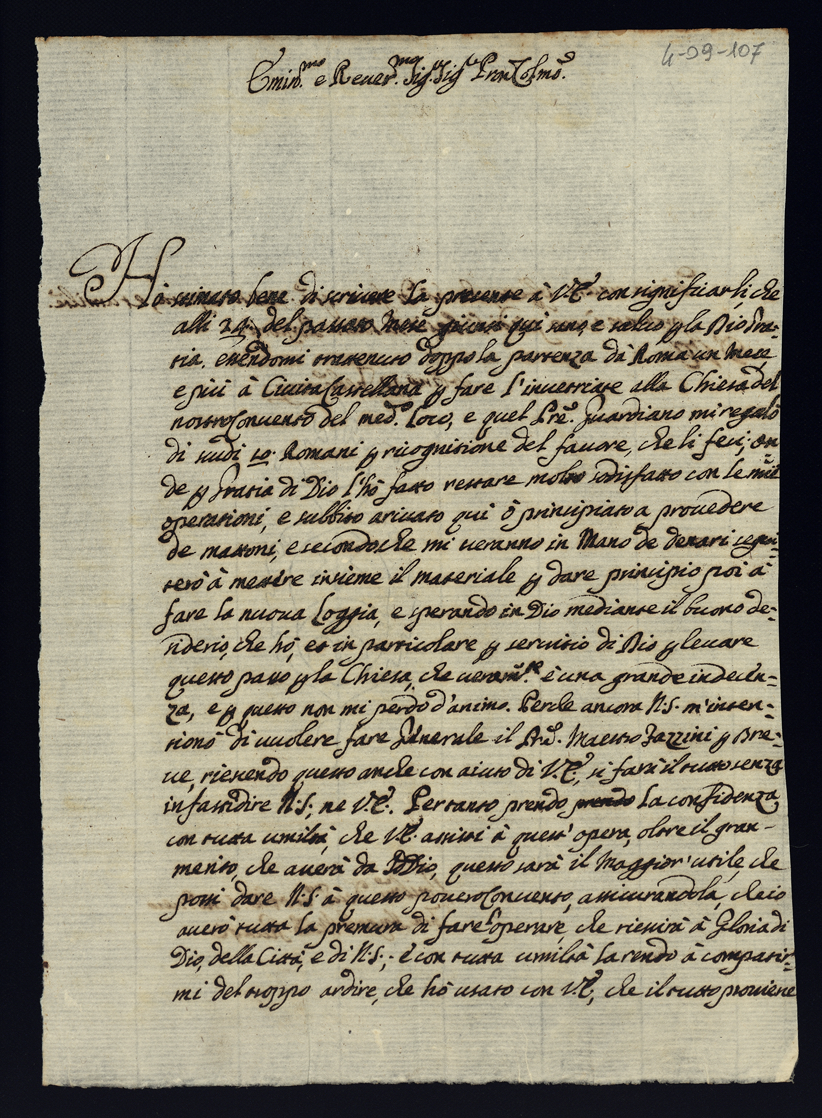 4-09-107
Emin.mo e Rever.mo Sig.r Sig.r Pron Colmo.
Hò stimato bene di scrivere la presente à V.E. con significarli che
alli 29. del passato Mese giunsi qui sano, e salvo p la Dio Gra-
tia, essendomi trattenuto doppo la partenza dà Roma un Mese,
e più à Civita Castellana p fare l'invetriate alla Chiesa del
nostro Convento del med.o loco, e quel Pre. Guardiano mi regalò
di scudi 10. Romani p ricognitione del favore, che li feci; on-
de p Gratia di Dio l'hò fatto restare molto sodisfatto con le mie
operationi, e subbito arivato qui ò principiato a provedere
de mattoni, e secondo che mi veranno in Mano de denari segui-
terò à mettere insieme il materiale p dare principio poi à
fare la nuova Loggia, e sperando in Dio mediante il buono de-
siderio, che hò, et in particolare p servitio di Dio p levare
questo passo p la Chiesa, che veram.te è una grande indecen-
za, e p questo non mi perdo d'animo. Perche ancora N.S. m'inten-
tionò di vuolere fare Generale il Pre. Maestro Zazzini p Bre-
ve, riescendo questo anche con aiuto di V.E., si farà il tutto senza
infastidire N.S., ne V.E. Pertanto prendo prendo la confidenza
con tutta umiltà, che V.E. assisti à quest'opera, oltre il gran-
merito, che averà da Iddio, questo sarà il Maggior utile, che
possi dare N.S. à questo povero Convento, assicurandola, che io
averò tutta la premura di fare l'operare, che riescirà à Gloria di
Dio, della Città, e di N.S.; è con tutta umiltà la rendo à compatir-
mi del troppo ardire, che hò usato con V.E., che il tutto proviene